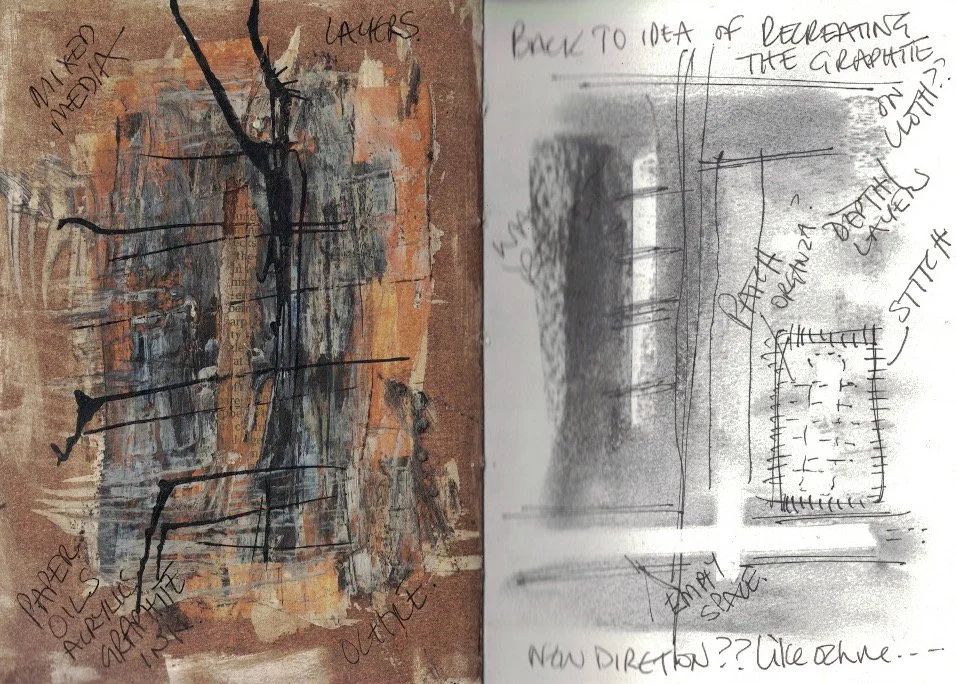 MIXED
MEDIA
LAYERS.
PAPER
OILS
ACRYLICS
GRAPHITE
INK
OCHRE.
BACK TO IDEA OF RECREATING
THE GRAPHITE
ON
CLOTH??
DEPTH/
LAYER
STITCH
PATCH
ORGINZA?
EMPTY
SPACE.
NEW DIRETION?? Like ochre....